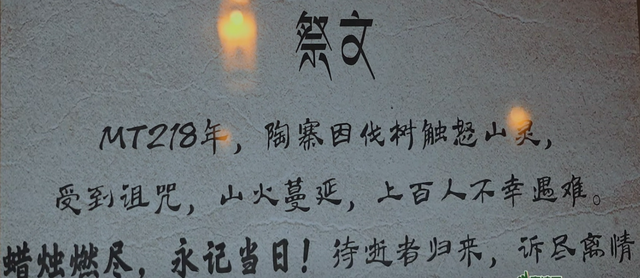 祭文
MT218年，陶寨因伐树触怒山灵，
受到诅咒，山火蔓延，上百人不幸遇难。
蜡烛燃尽，永记当日！待逝者归来，诉尽离情